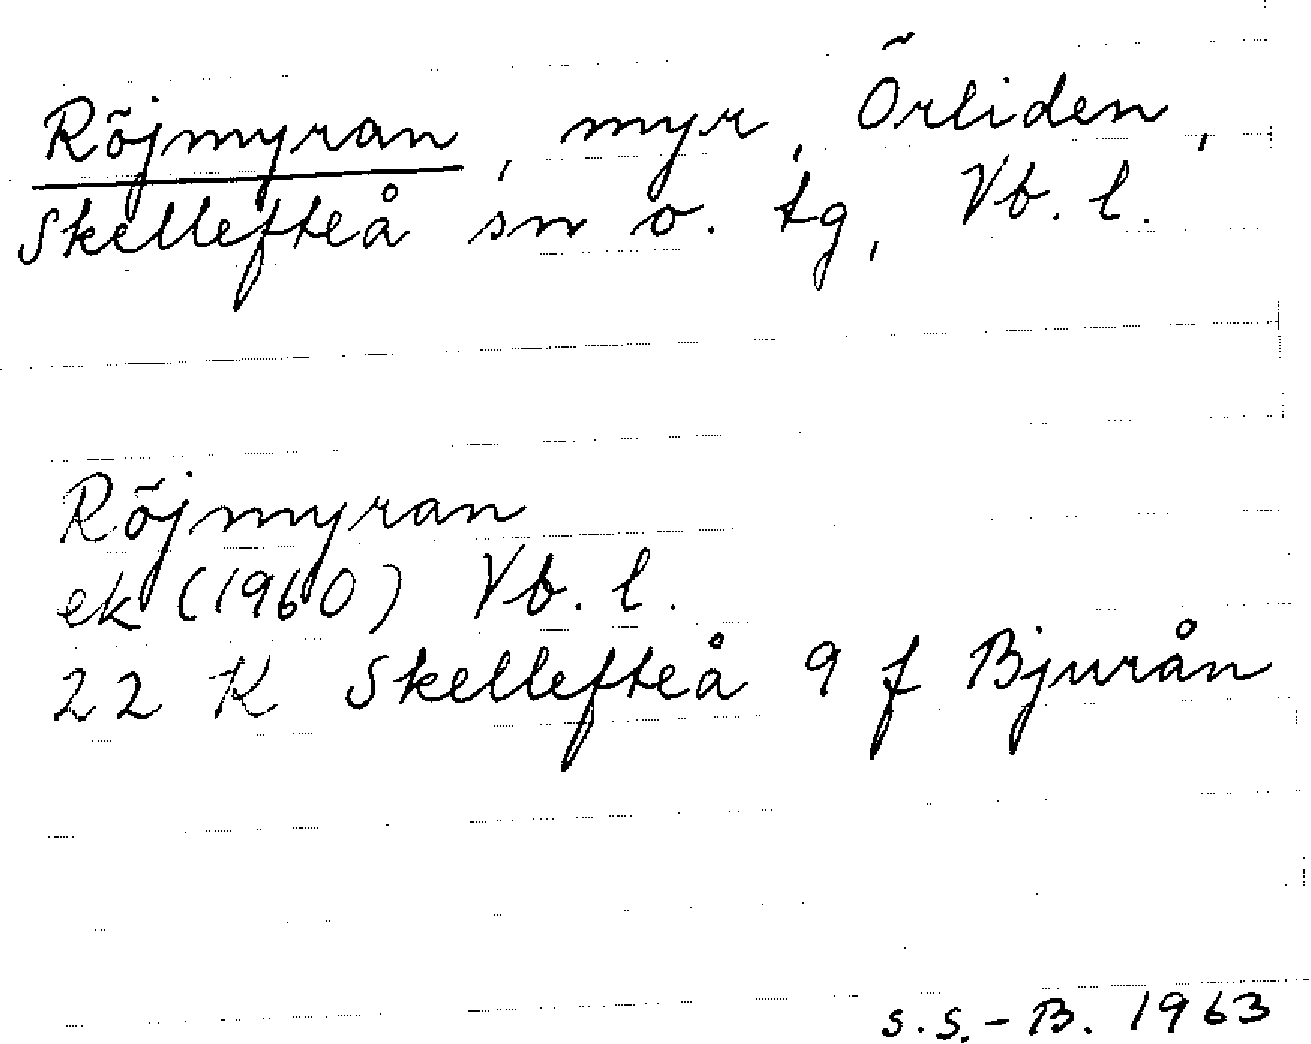 Röjmyran, myr, Örliden,
Skellefteå sn o. tg, Vb. l.
Röjmyran
ek (1960) Vb. l.
22 K Skellefteå 9 f Bjurån
S.S.-B. 1963